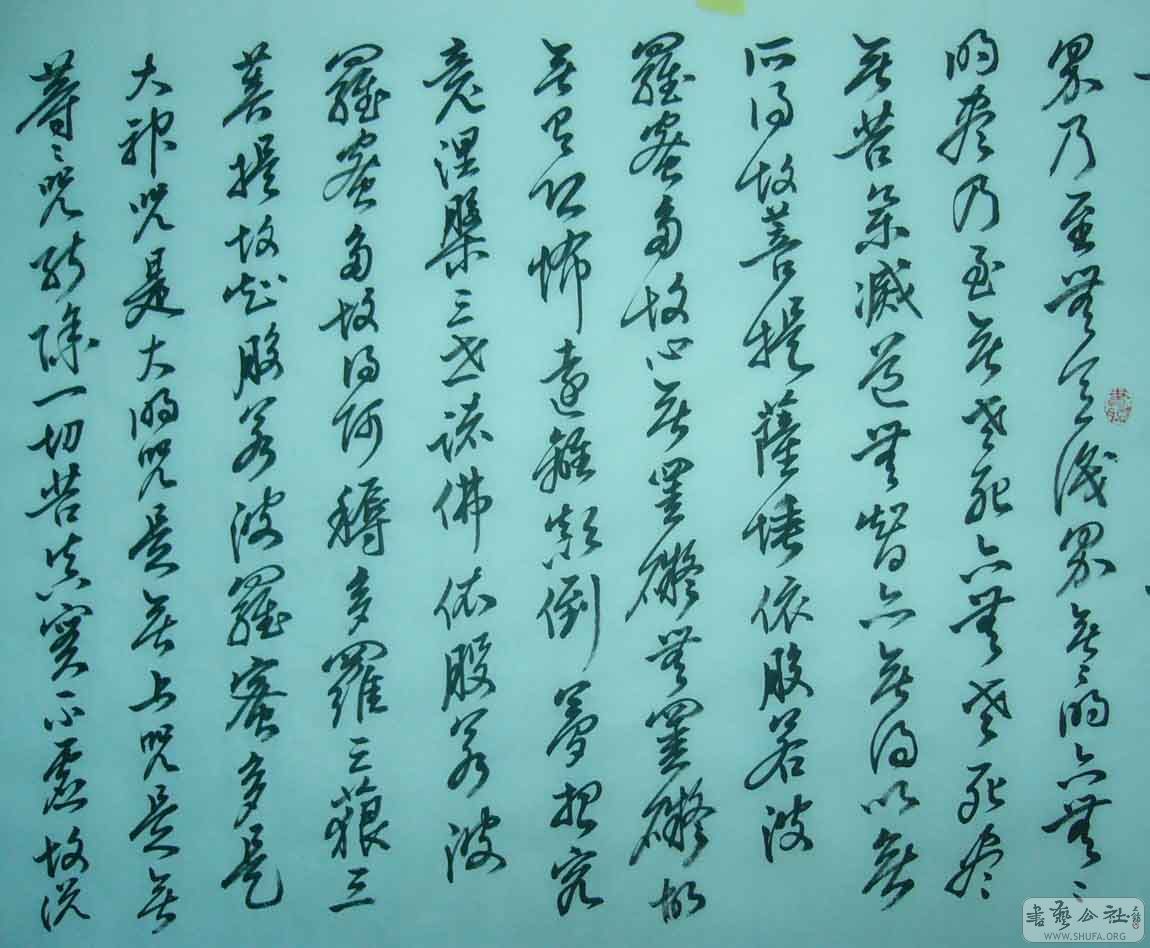 界乃至無意識界無〻明亦無〻
明盡乃至無老死亦無老死盡
無苦集滅道無智亦無得以無
所得故菩提薩埵依般若波
羅蜜多故心無罣礙無罣礙故
無有恐怖遠離顛倒夢想究
竟涅槃三世諸佛依般若波
羅蜜多故得阿耨多羅三藐三
菩提故知般若波羅蜜多是
大神咒是大明咒是無上咒是無
等〻咒能除一切苦真實不虛故說
書藝公社
WWW.SHUFA.ORG